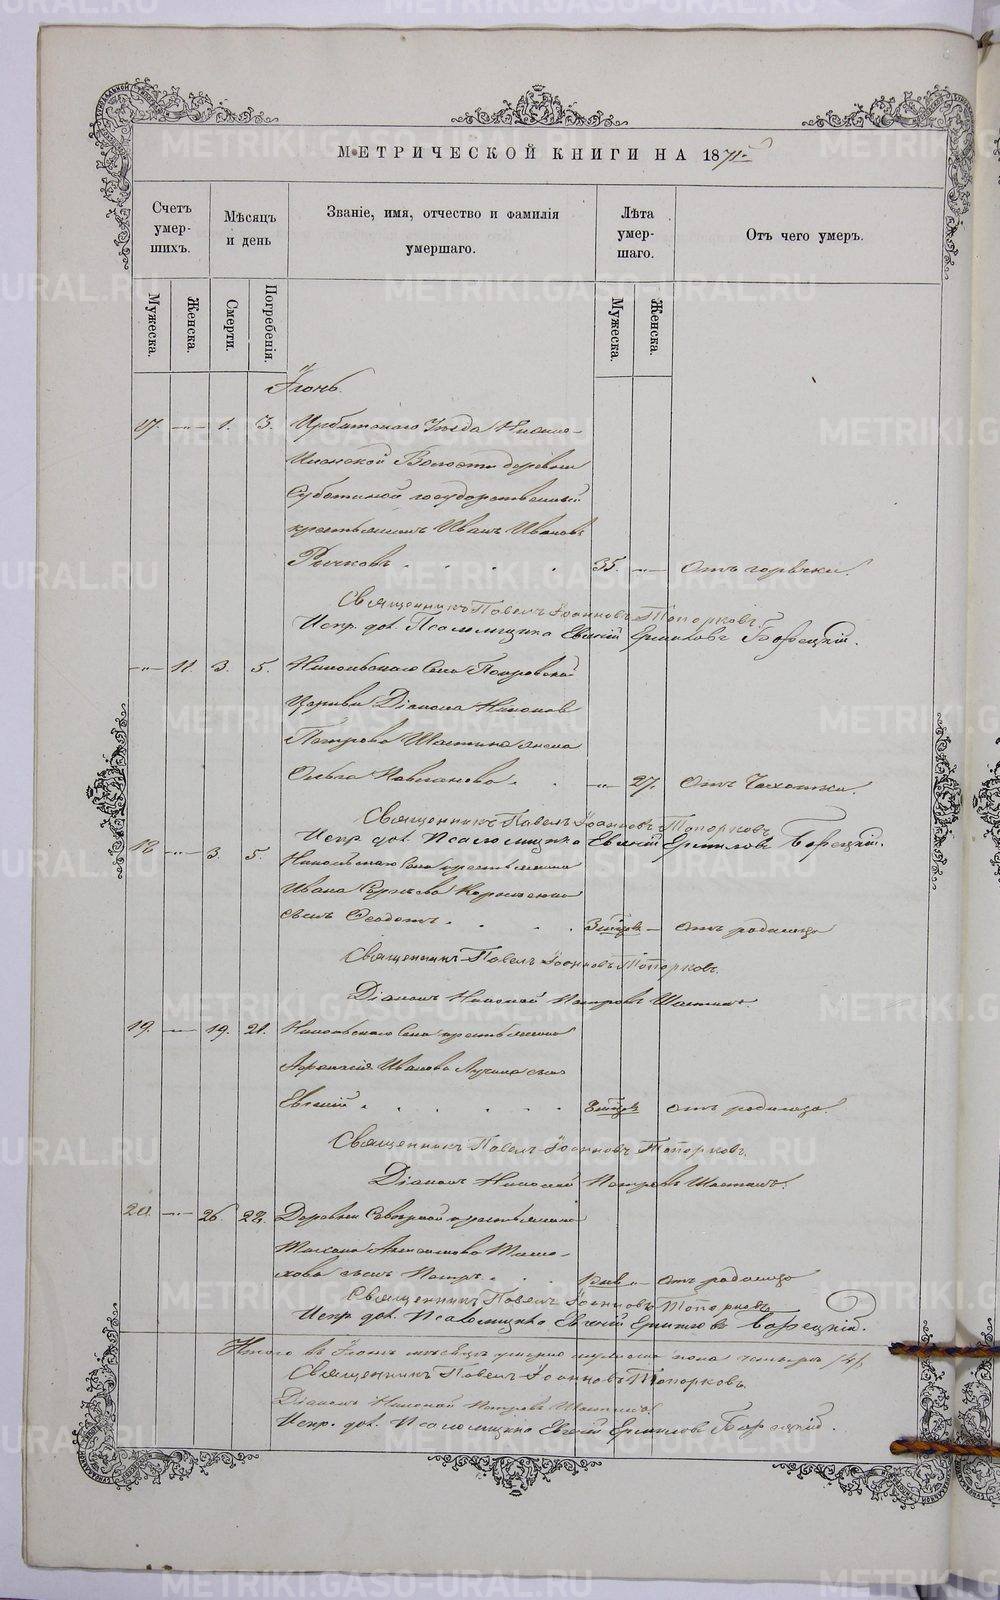 МЕТРИЧЕСКОЙ КНИГИ НА 1871
Счетъ умер-шихъ.
Мѣсяцъ и день
Званіе, имя, отчество и фамилія умершаго.
Лѣта умер-шаго.
Отъ чего умеръ.
Мужеска.
Женска.
Смерти.
Погребенія.
Мужеска.
Женска.
Іюнь
17. —„— 1. 3. Ирбитскаго Уѣзда
Волости деревни
Субботиной государственный
крестьянинъ Иванъ Ивановъ
Рычковъ . . . . 35. —„— Отъ горячки.
Священникъ Павелъ Іоанновъ Топорковъ.
Испр. дол. Псаломщика Евгеній Ермиловъ Борецкій.
—„— 11. 3. 5. Никольскаго Села Петровской
Церкви Діакона Николая
Петрова Шастина жена
Ольга . . —„— 27. Отъ Чахотки.
Священникъ Павелъ Іоанновъ Топорковъ
Испр. дол. Псаломщика Евгеній Ермиловъ Борецкій.
18 —„— 3. 5. Никольскаго Села крестьянина
Ивана
сынъ Ѳеодотъ . . . . 3 — отъ родимца
Священникъ Павелъ Іоанновъ Топорковъ.
Діаконъ Николай Петровъ Шастинъ.
19. —„— 19. 21. Никольскаго Села крестьянина
Аѳанасія Иванова сынъ
Евгеній . . . . . . отъ родимца.
Священникъ Павелъ Іоанновъ Топорковъ.
Діаконъ Николай Петровъ Шастинъ.
20. —„— 26. 28. Деревни крестьянина
сынъ Петръ . . . отъ родимца
Священникъ Павелъ Іоанновъ Топорковъ
Испр. дол. Псаломщика Евгеній Ермиловъ Борецкій.
Итого въ Іюнѣ мѣсяцѣ умерло мужеска пола четыре /4/
Священникъ Павелъ Іоанновъ Топорковъ
Діаконъ Николай Петровъ Шастинъ
Испр. дол. Псаломщика Евгеній Ермиловъ Борецкій.
METRIKI.GASO-URAL.RU